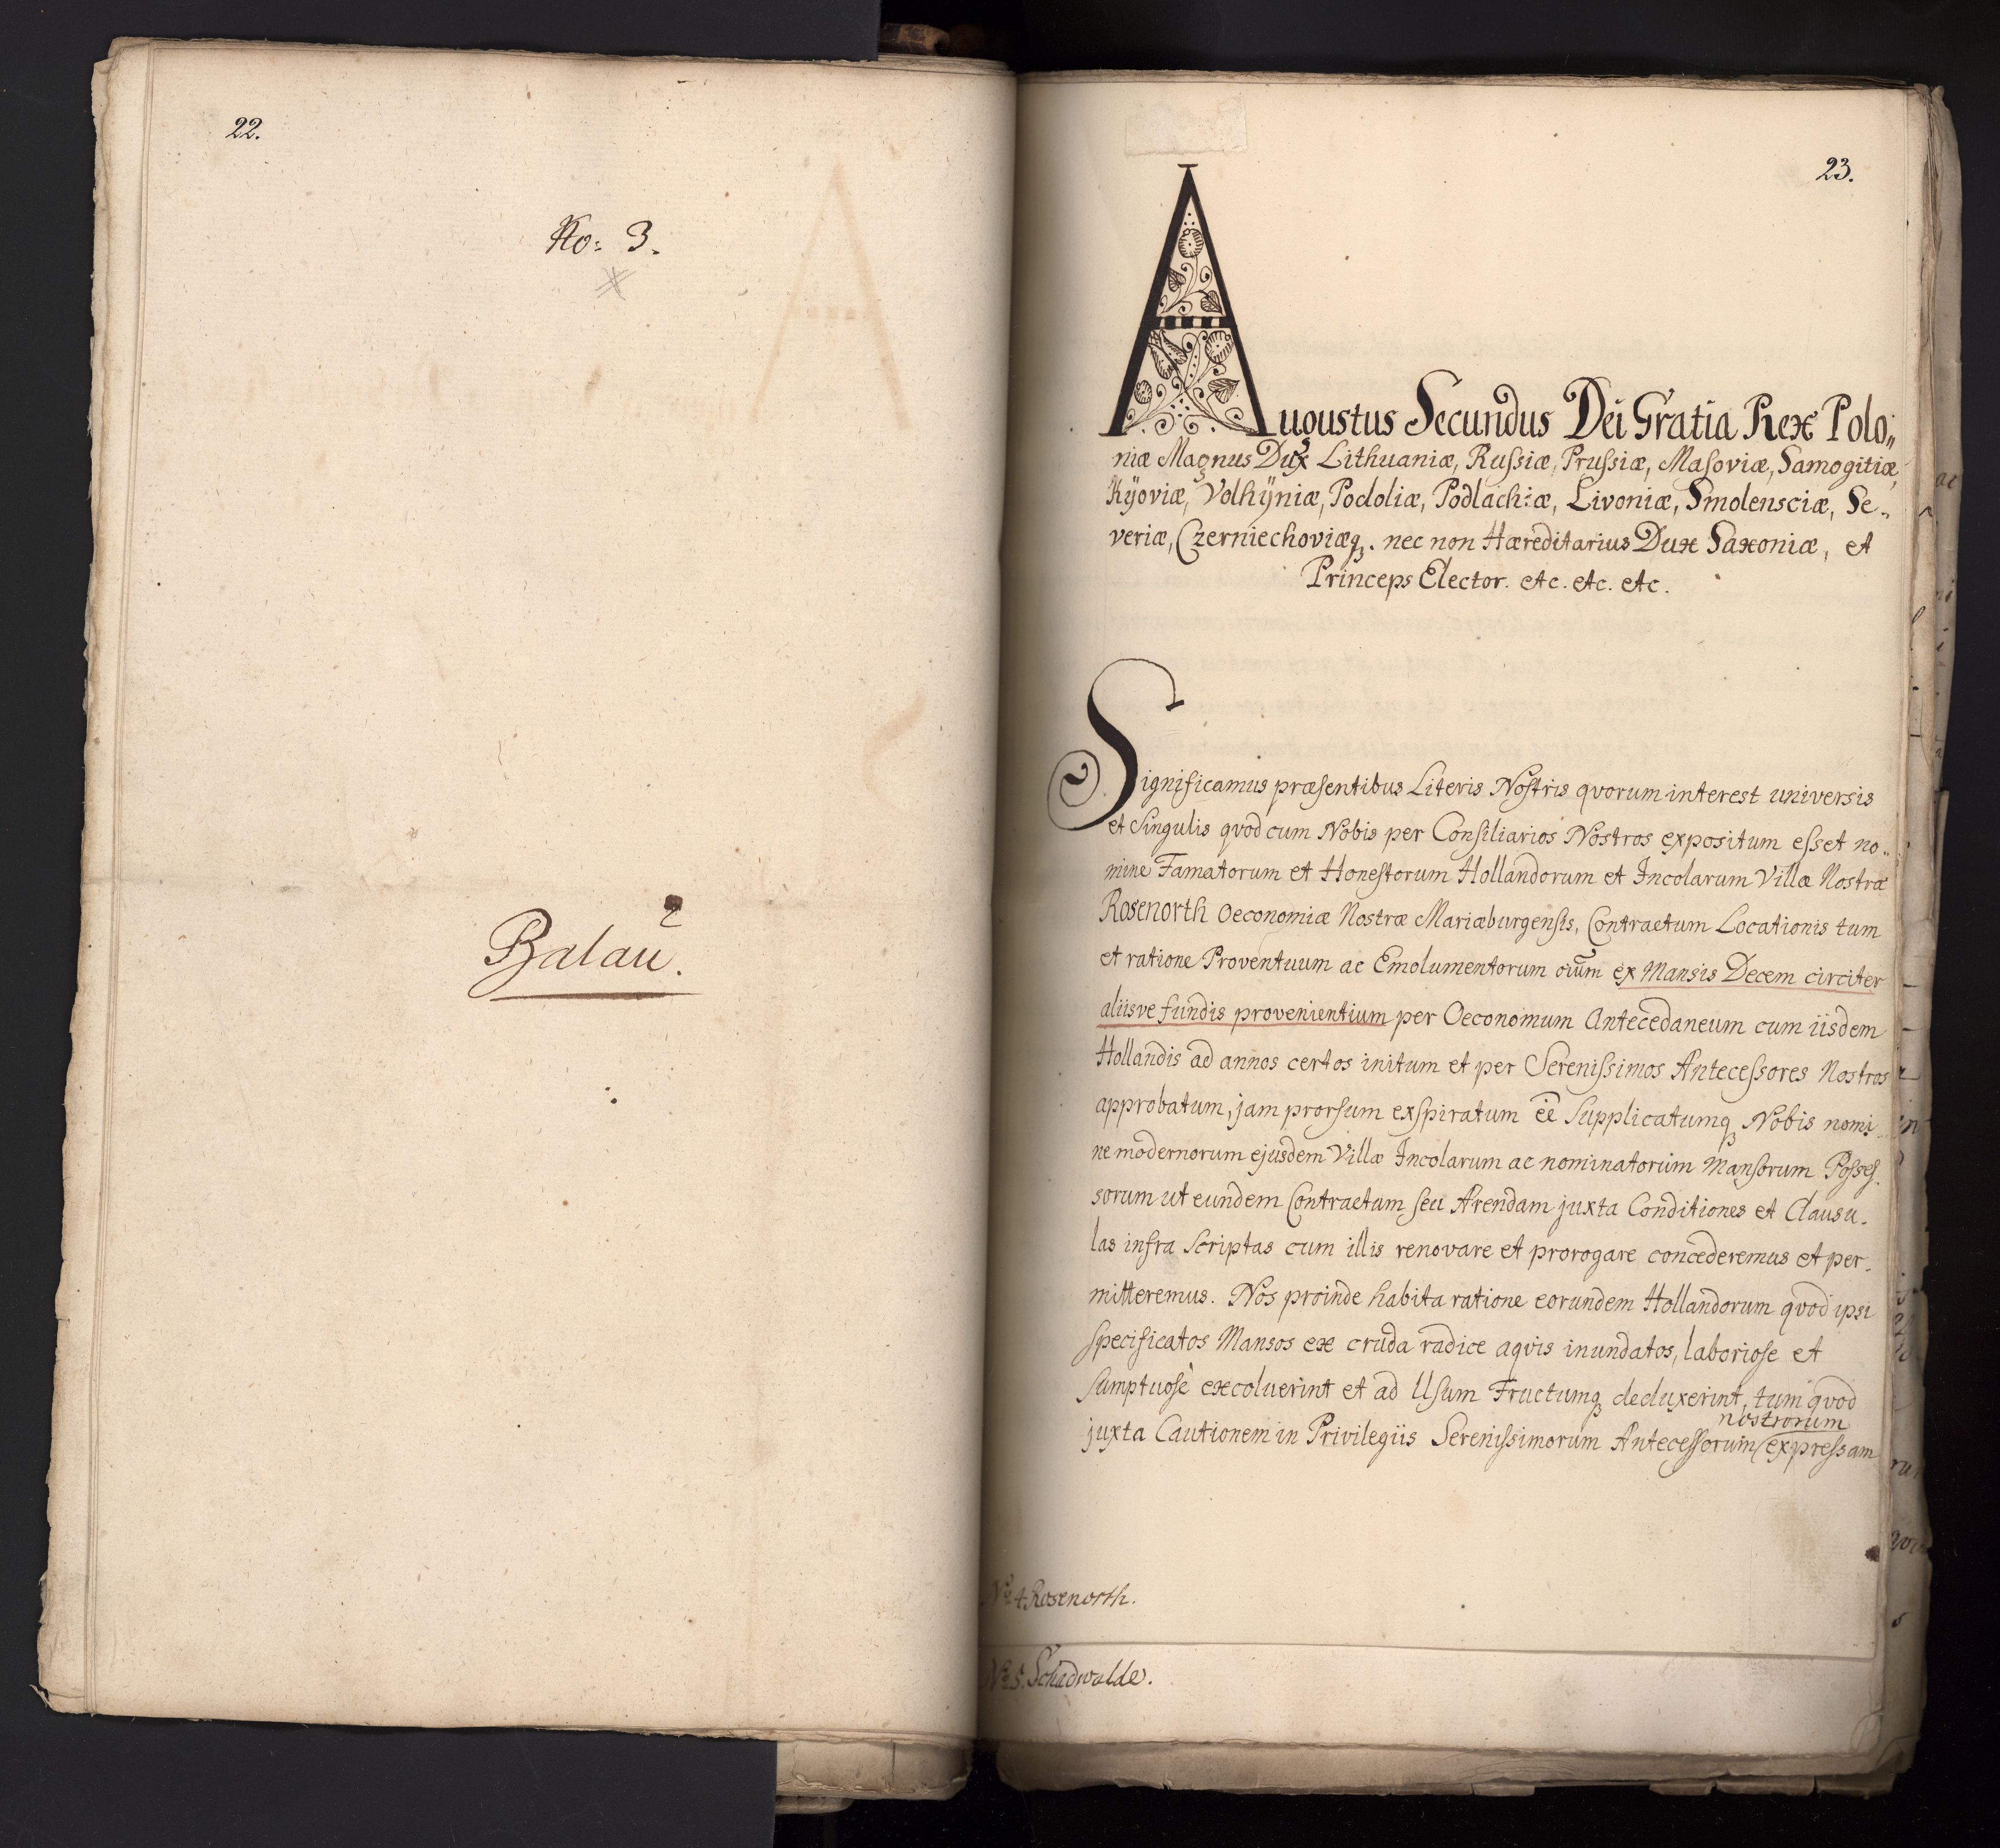 22.
No: 3.
Balau.
23.
Augustus Secundus Dei Gratia Rex Polo„
niæ Magnus Dux Lithuaniæ, Russiæ, Prussiæ, Masoviæ, Samogitiæ,
Kÿoviæ, Volhÿniæ, Podoliæ, Podlachiæ, Livoniæ, Smolensciæ, Se„
veriæ, Czerniechoviæq. nec non Hæreditarius Dux Saxoniæ, et
Princeps Elector. etc. etc. etc.
Significamus præsentibus Literis Nostris qvorum interest universis
et Singulis qvod cum Nobis per Consiliarios Nostros expositum esset no„
mine Famatorum et Honestorum Hollandorum et Incolarum Villæ Nostræ
Rosenorth Oeconomiæ Nostræ Mariæburgensis, Contractum Locationis tum
et ratione Proventuum ac Emolumentorum oium ex Mansis Decem circiter
aliisve fundis provenientium per Oeconomum Antecedaneum cum iisdem
Hollandis ad annos certos initum et per Serenissimos Antecessores Nostros
approbatum, jam prorsum exspiratum ee Supplicatumq Nobis nomi
ne modernorum ejusdem Villæ Incolarum ac nominatorum Mansorum Posses.
sorum ut eundem Contractum seu Arendam juxta Conditiones et Clausu.
las infra scriptas cum illis renovare et prorogare concederemus et per.
mitteremus. Nos proinde habita ratione eorundem Hollandorum qvod ipsi
specificatos Mansos ex cruda radice aqvis inundatos, laboriose et
sumptuosè excoluerint et ad Usum Fructumq deduxerint, tum qvod
nostrorum
juxta Cautionem in Privilegiis Serenissimorum Antecessorum expressam
No 4 Rosenorth.
No 5. Schadwalde.